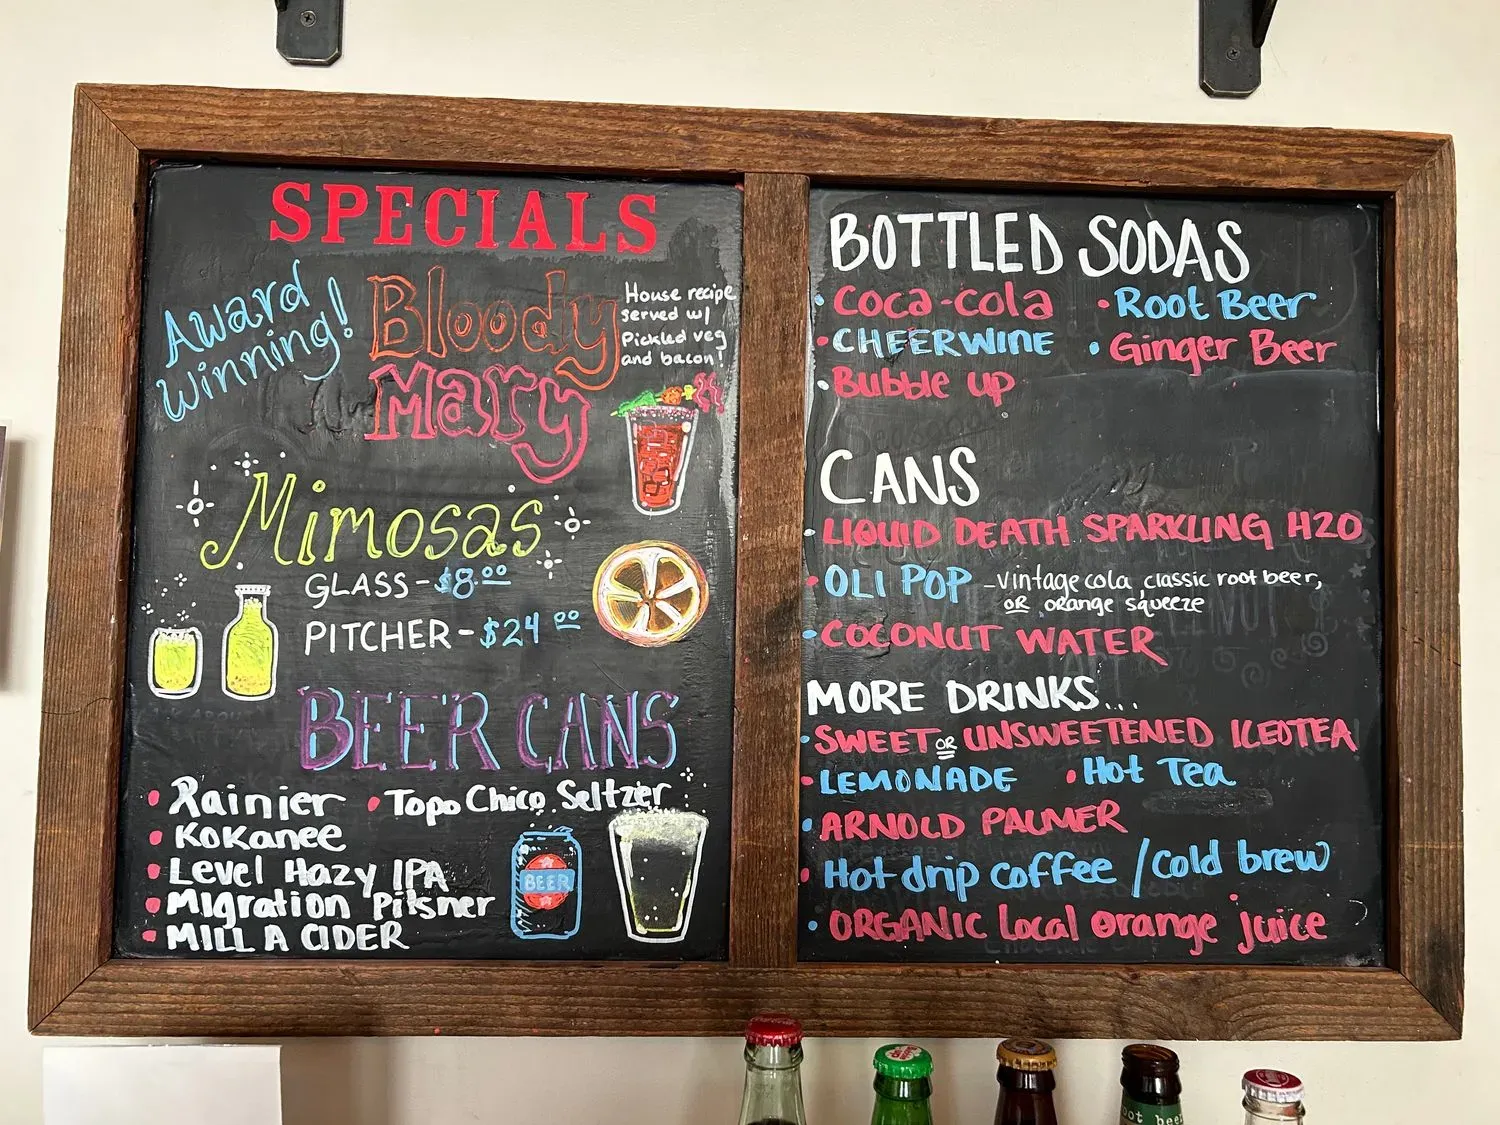 SPECIALS
Award
Winning!
Bloody
Mary
House recipe
served w/
Pickled veg
and bacon!
Mimosas
GLASS - $8.00
PITCHER - $24.00
BEER CANS
• Rainier • Topo Chico Seltzer
• Kokanee
• Level Hazy IPA
• Migration Pilsner
• MILL A CIDER
BEER
BOTTLED SODAS
• Coca-cola • Root Beer
• CHEERWINE • Ginger Beer
• Bubble up
CANS
• LIQUID DEATH SPARKLING H2O
• OLI POP - vintage cola, classic root beer,
OR orange squeeze
• COCONUT WATER
MORE DRINKS...
• SWEET OR UNSWEETENED ICEDTEA
• LEMONADE • Hot Tea
• ARNOLD PALMER
• Hot drip coffee / Cold brew
• ORGANIC local orange juice
oot beer